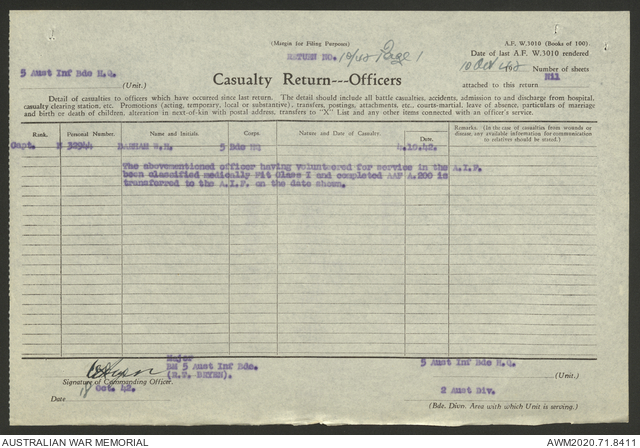 (Margin for Filing Purposes)
A.F. W.3010 (Books of 100).
RETURN NO. 10/42 Page 1
Date of last A.F. W.3010 rendered
10 Oct 42 Number of sheets
attached to this return Nil
5 Aust Inf Bde H.Q.
(Unit.)
Casualty Return---Officers
Detail of casualties to officers which have occurred since last return. The detail should include all battle casualties, accidents, admission to and discharge from hospital,
casualty clearing station, etc. Promotions (acting, temporary, local or substantive), transfers, postings, attachments, etc., courts-martial, leave of absence, particulars of marriage
and birth or death of children, alteration in next-of-kin with postal address, transfers to "X" List and any other items connected with an officer's service.
Rank. Personal Number. Name and Initials. Corps. Nature and Date of Casualty. Date. Remarks. (In the case of casualties from wounds or disease, any available information for communication to relatives should be stated.)
Capt. N 32944 5 Bde HQ 4.10.42.
The abovementioned officer having volunteered for service in the A.I.F.
been classified medically Fit Class I and completed AAF A.200 is
transferred to the A.I.F. on the date shown.
Major
BM 5 Aust Inf Bde.
Signature of Commanding Officer.
Date Oct. 42.
5 Aust Inf Bde H.Q.
(Unit.)
2 Aust Div.
(Bde. Divn. Area with which Unit is serving.)
AUSTRALIAN WAR MEMORIAL
AWM2020.71.8411